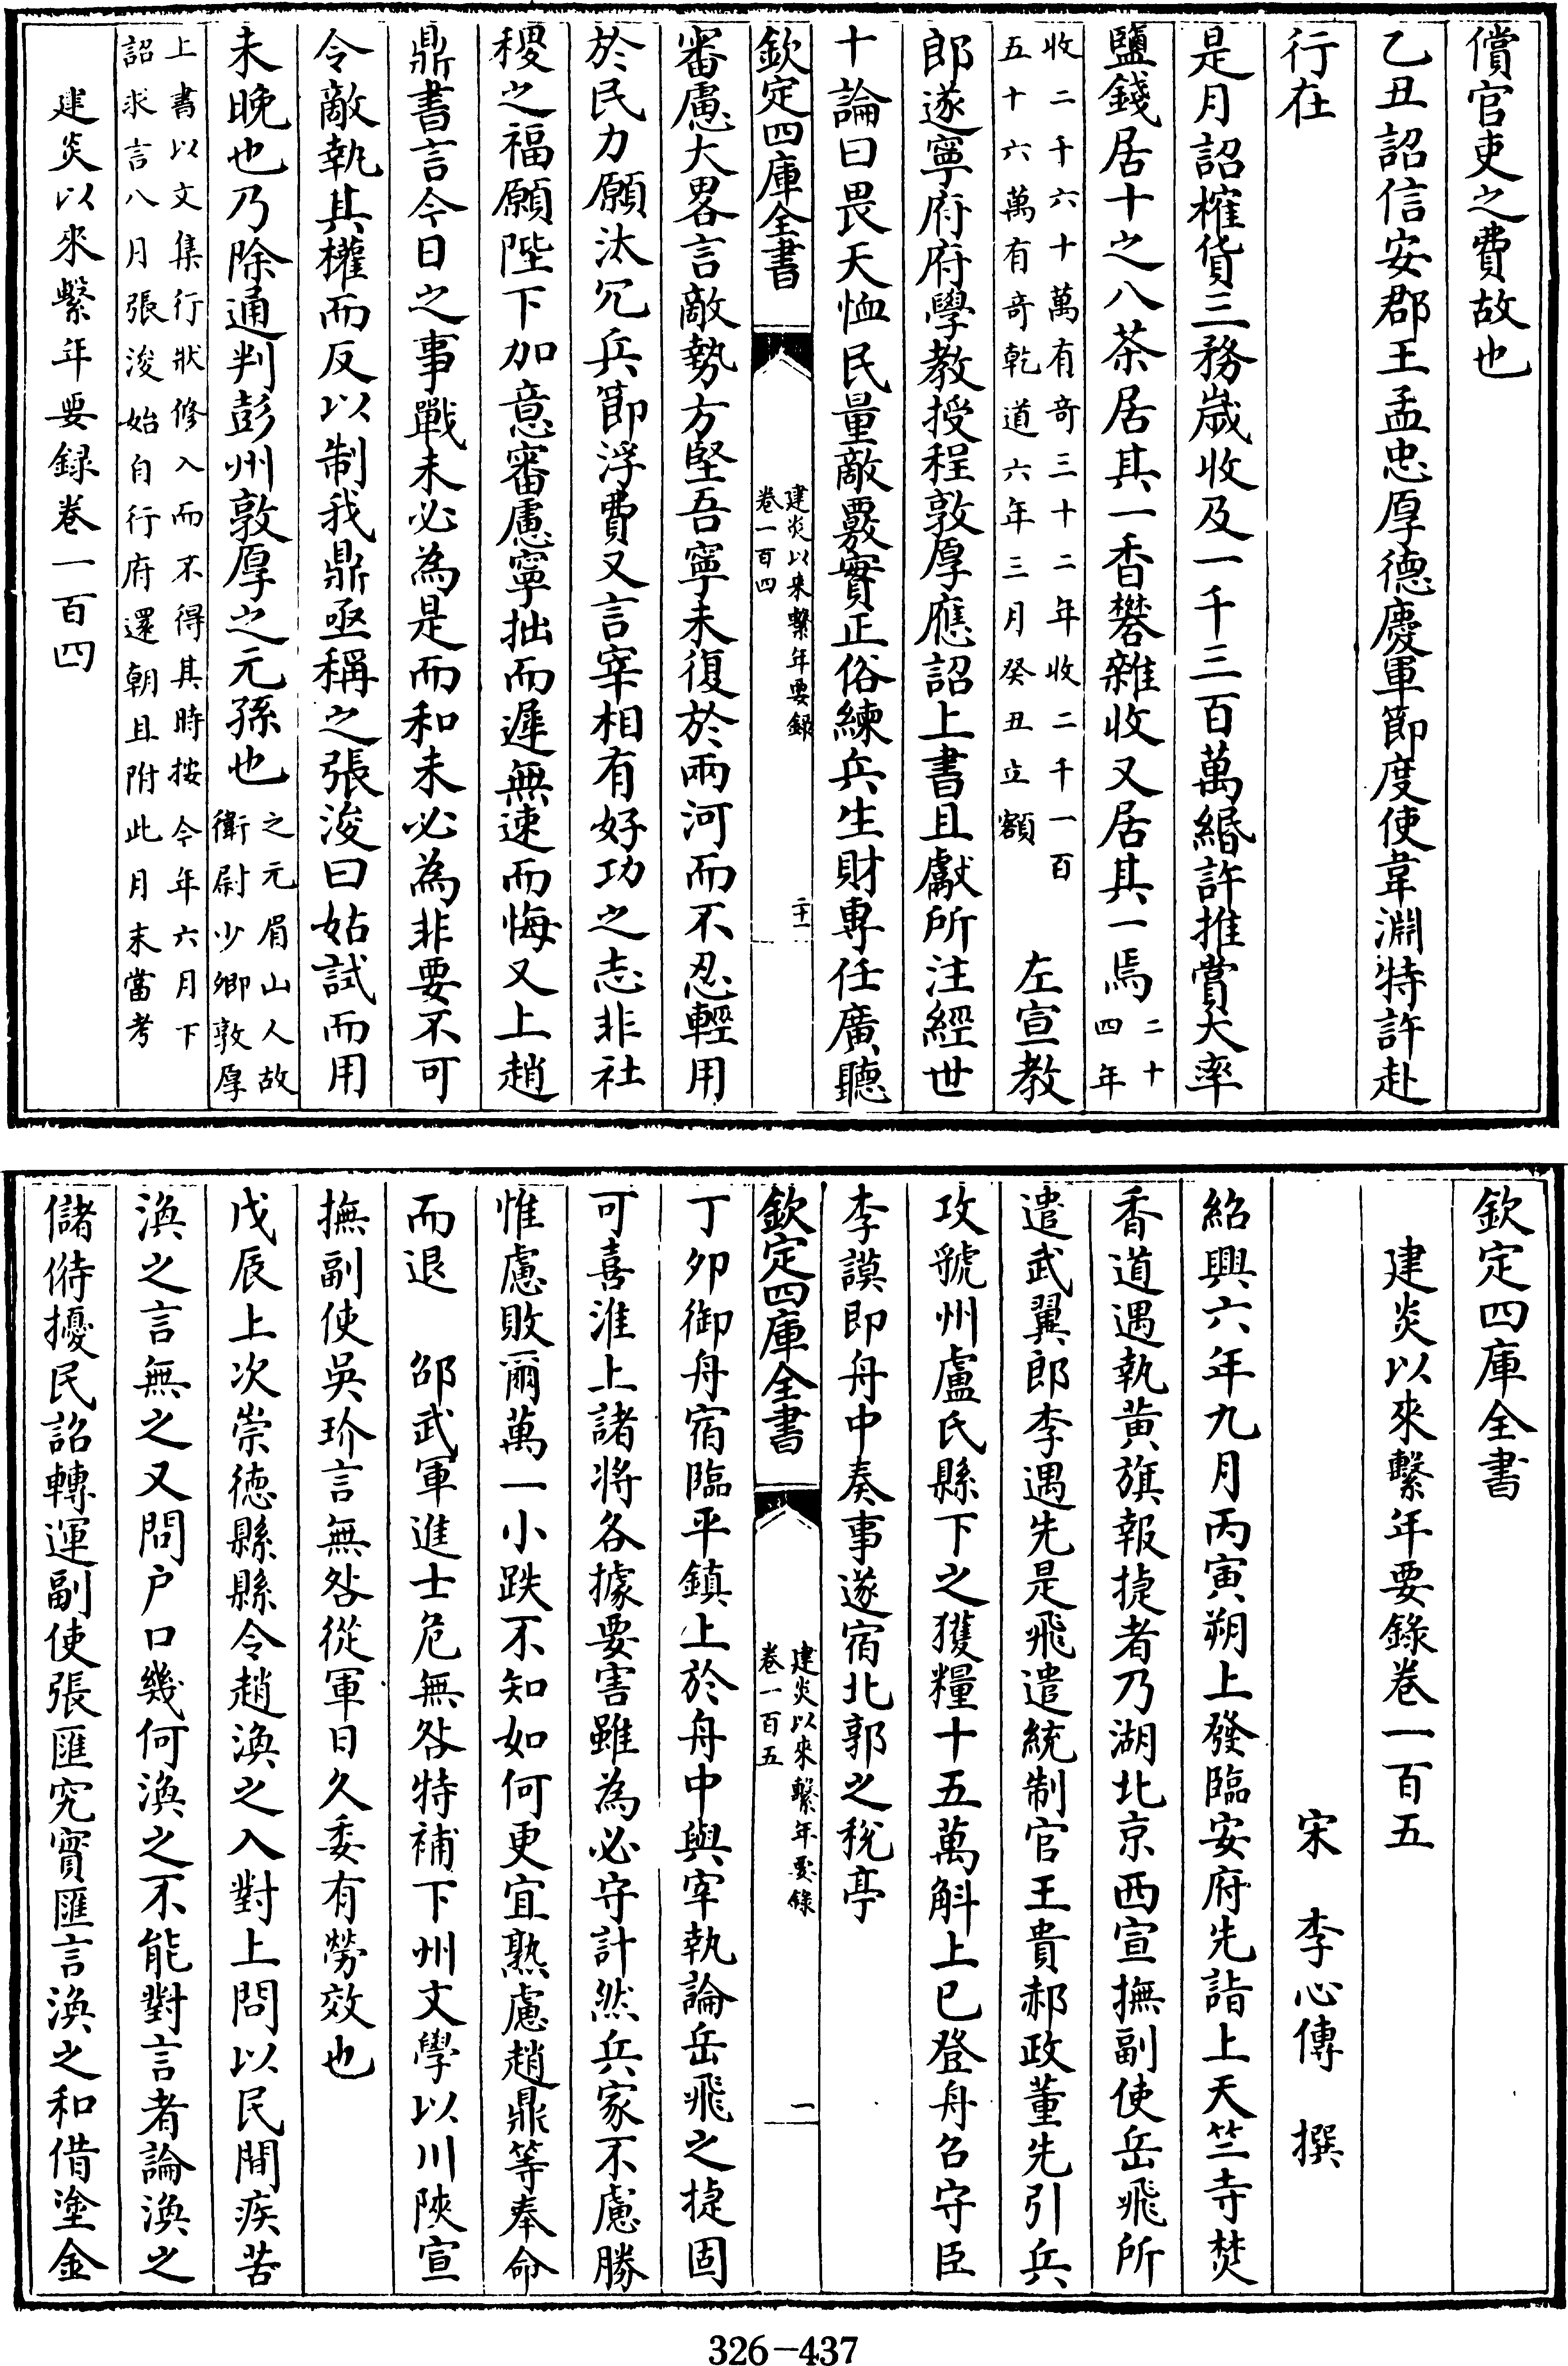 償官吏之費故也
乙丑詔信安郡王孟忠厚德慶軍節度使韋淵特許赴
行在
是月詔榷貨三務歲收及一千三百萬緡許推賞大率
鹽錢居十之八茶居其一香礬雜收又居其一焉二十四年
收二千六十萬有奇三十二年收二千一百
五十六萬有奇乾道六年三月癸丑立額 左宣教
郎遂寧府府學教授程敦厚應詔上書且獻所注經世
十論曰畏天恤民量敵覈實正俗練兵生財專任廣聽
欽定四庫全書 建炎以來繫年要録 卷一百四 二十一
審慮大畧言敵勢方堅吾寧未復於兩河而不忍輕用
於民力願汰冗兵節浮費又言宰相有好功之志非社
稷之福願陛下加意審慮寧拙而遲無速而悔又上趙
鼎書言今日之事戰未必為是而和未必為非要不可
令敵執其權而反以制我鼎亟稱之張浚曰姑試而用
未晚也乃除通判彭州敦厚之元孫也之元眉山人故衛尉少卿敦厚
上書以文集行狀修入而不得其時按今年六月下
詔求言八月張浚始自行府還朝且附此月末當考
建炎以來繫年要録卷一百四
欽定四庫全書
建炎以來繫年要錄卷一百五
宋 李心傳 撰
紹興六年九月丙寅朔上發臨安府先詣上天竺寺焚
香道遇執黃旗報捷者乃湖北京西宣撫副使岳飛所
遣武翼郎李遇先是飛遣統制官王貴郝政董先引兵
攻虢州盧氏縣下之獲糧十五萬斛上已登舟召守臣
李謨即舟中奏事遂宿北郭之稅亭
欽定四庫全書 建炎以來繫年要錄 卷一百五 一
丁卯御舟宿臨平鎮上於舟中與宰執論岳飛之捷固
可喜淮上諸將各據要害雖為必守計然兵家不慮勝
惟慮敗爾萬一小跌不知如何更宜熟慮趙鼎等奉命
而退 邵武軍進士危無咎特補下州文學以川陝宣
撫副使吳玠言無咎從軍日久委有勞效也
戊辰上次崇德縣縣令趙渙之入對上問以民間疾苦
渙之言無之又問户口幾何渙之不能對言者論渙之
儲偫擾民詔轉運副使張匯究實匯言渙之和借塗金
326-437